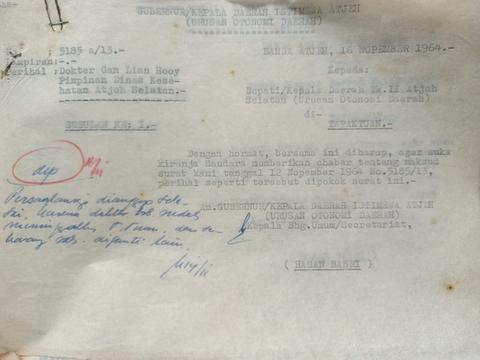 GUBERNUR/KEPALA DAERAH ISTIMEWA ATJEH
(URUSAN OTONOMI DAERAH)
No. : 5185 a/13.-
BANDA ATJEH, 16 NOPEMBER 1964.-
Lampiran:-.-
Perihal : Dokter Gan Lian Hooy
Pimpinan Dinas Kese-
hatan Atjeh Selatan.-
Kepada:
Bupati/Kepala Daerah Tk.II Atjeh
Selatan (Urusan Otonomi Daerah)
di-
TAPAKTUAN.-
SUSULAN KE: I.-
Dengan hormat, bersama ini diharap, agar suka
kiranja Saudara memberikan chabar tentang maksud
surat kami tanggal 12 Nopember 1964 No.5185/13,
perihal seperti tersebut dipokok surat ini.-
AN.GUBERNUR/KEPALA DAERAH ISTIMEWA ATJEH
(URUSAN OTONOMI DAERAH)
Kepala Bhg.Umum/Secretariat,
( HASAN BASRI )
dep
Persoalan dianggap sele-
sai, karena dokter tsb. sudah
T. Tuan, dan se-
karang sdh. diganti lain.